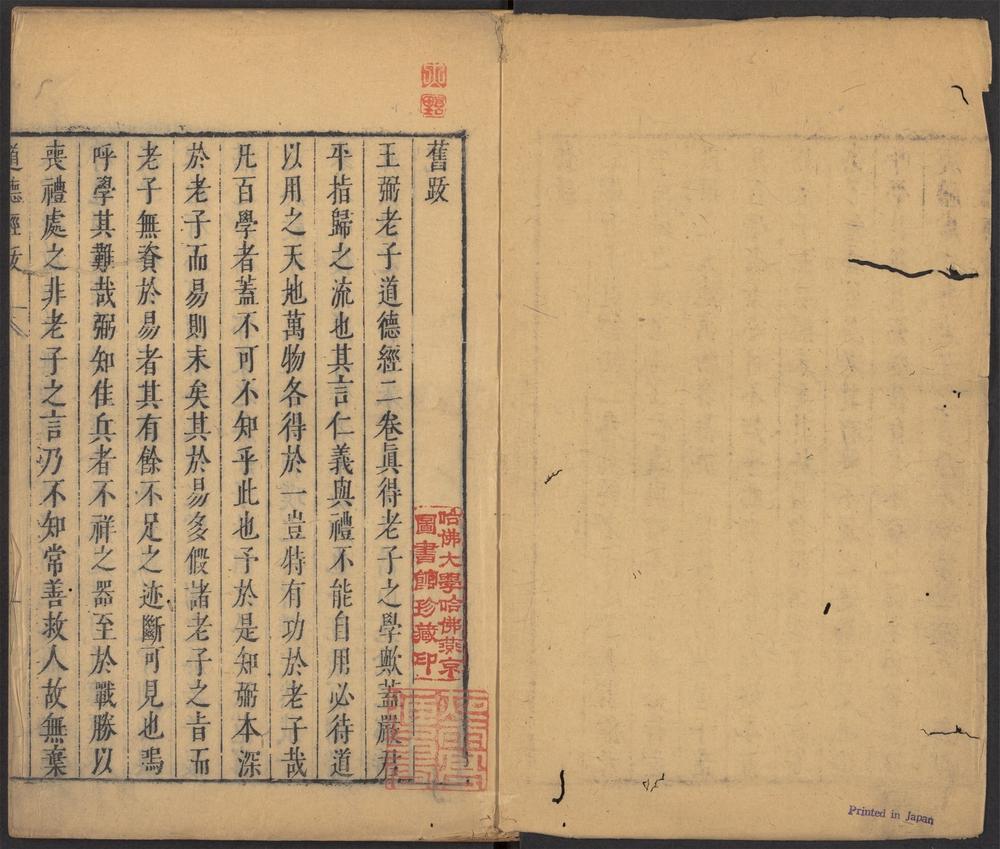 舊跋
王弼老子道德經二卷眞得老子之學歟蓋嚴君
平指歸之流也其言仁義與禮不能自用必待道
以用之天地萬物各得於一豈特有功於老子哉
凡百學者蓋不可不知乎此也予於是知弼本深
於老子而易則末矣其於易多假諸老子之旨而
老子無資於易者其有餘不足之迹斷可見也嗚
呼學其難哉弼知佳兵者不祥之器至於戰勝以
喪禮處之非老子之言乃不知常善救人故無棄
道德經跋
哈佛大學哈佛燕京
圖書館珍藏印
Printed in Japan